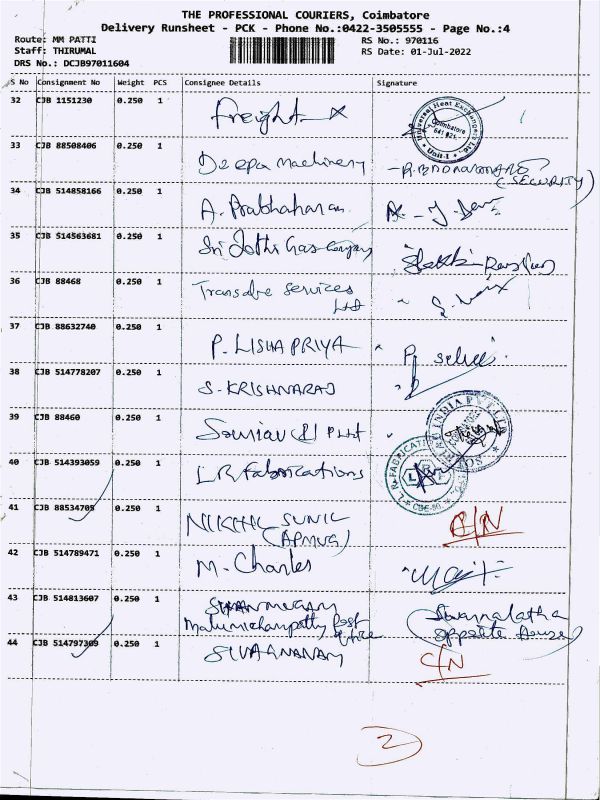 THE PROFESSIONAL COURIERS, Coimbatore
Delivery Runsheet - PCK - Phone No.:0422-3505555 - Page No.:4
Route: MM PATTI RS No.: 970116
Staff: THIRUMAL RS Date: 01-Jul-2022
DRS No.: DCJB97011604
S No Consignment No Weight PCS Consignee Details Signature
32 CJB 1151230 0.250 1 Freight
Universal Heat Exchangers Ltd. Coimbatore 641 021. Unit-I
33 CJB 88508406 0.250 1 Deepa Machinery
(SECURITY)
34 CJB 514858166 0.250 1 A. Prabhaharan
35 CJB 514563681 0.250 1 Sri Jothi Gas Company
36 CJB 88468 0.250 1 Transafe Services
Ltd
37 CJB 88632740 0.250 1 P. LISHA PRIYA
38 CJB 514778207 0.250 1 S. KRISHNARAJ
39 CJB 88460 0.250 1
INDIA PVT LTD
40 CJB 514393059 0.250 1 LR Fabrications
41 CJB 88534705 0.250 1 NIKHIL SUNIL
42 CJB 514789471 0.250 1 M. Charles
43 CJB 514813607 0.250 1 SHANMUGAM Swarnalatha
Malumichampatty Post Office (opposite House)
44 CJB 514797309 0.250 1 SIVAGNANAM C/N
2